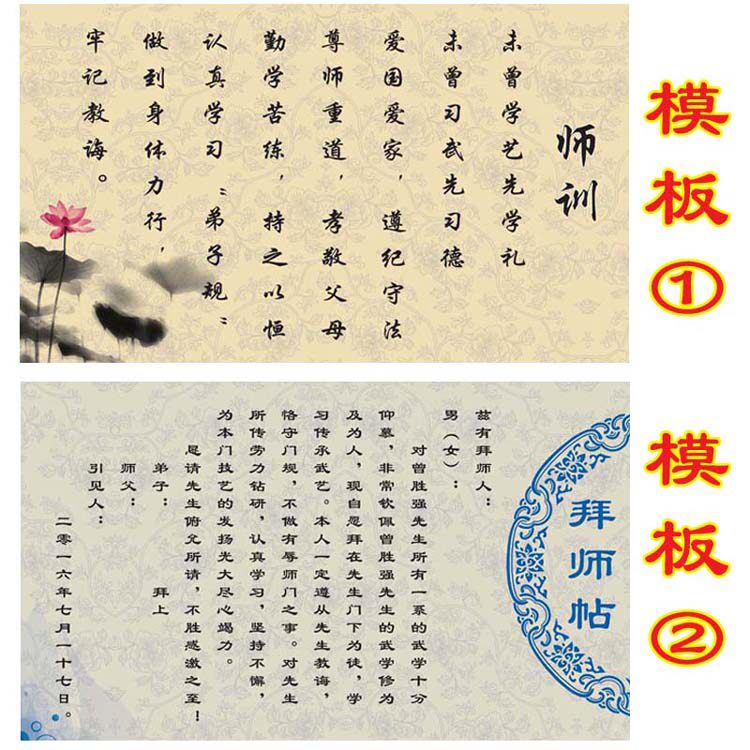 模板①
师训
未曾学艺先学礼
未曾习武先习德
爱国爱家，遵纪守法
尊师重道，孝敬父母
勤学苦练，持之以恒
认真学习“弟子规”
做到身体力行，
牢记教诲。
模板②
拜师帖
兹有拜师人：
男（女）：
对曾胜强先生所有一系的武学十分
仰慕，非常钦佩曾胜强先生的武学修为
及为人，现自忍拜在先生门下为徒，学
习传承武艺。本人一定遵从先生教诲，
恪守门规，不做有辱师门之事。对先生
所传劳力钻研，认真学习，坚持不懈，
为本门技艺的发扬光大尽心竭力。
恳请先生俯允所请，不胜感激之至！
弟子： 拜上
师父：
引见人：
二零一六年七月一十七日。